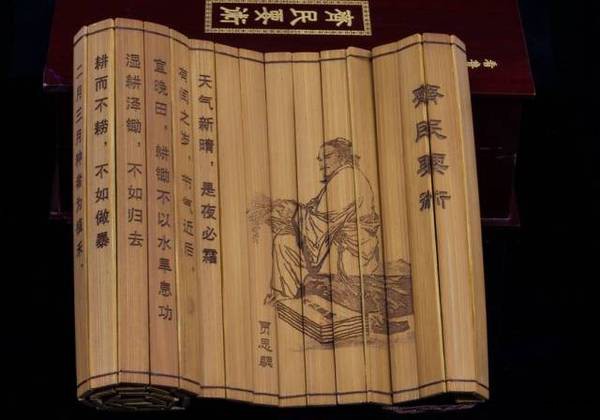 齊民要術
齊民要術
贾思勰
天气新晴，是夜必霜
有闰之岁，节气近后，
宜晚田，耕锄不以水旱息功
湿耕泽锄，不如归去
耕而不耢，不如做暴
二月三月种者为植禾，